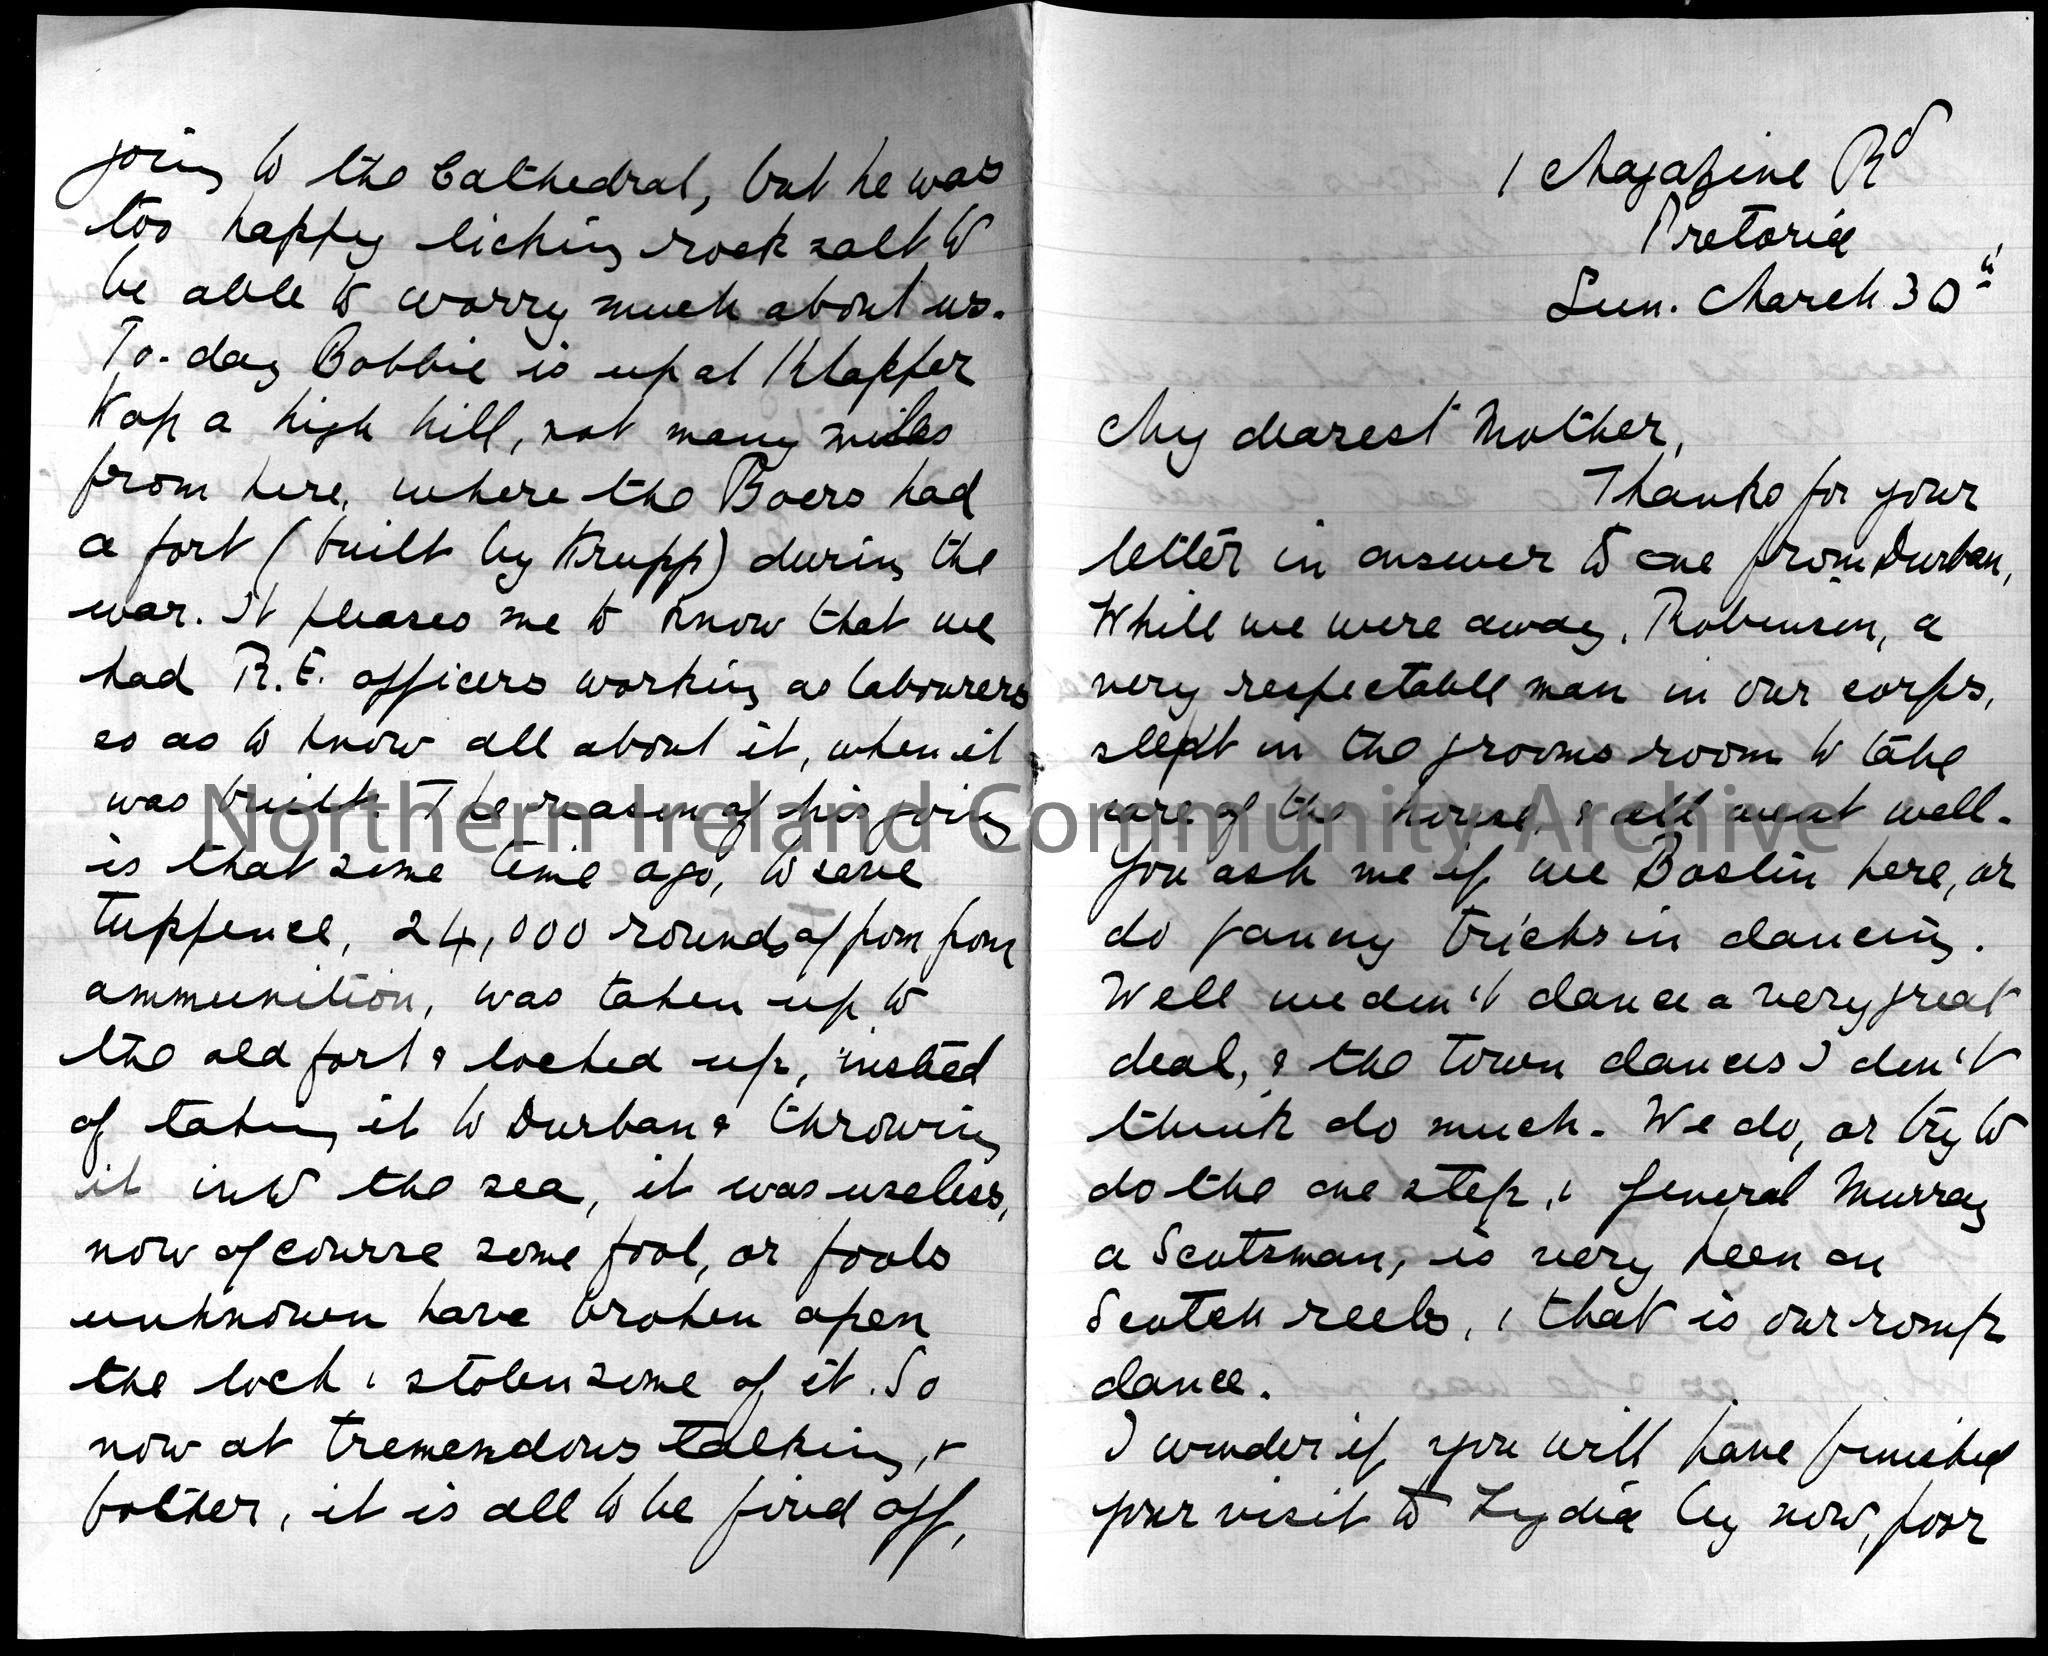 1 Magazine Rd
Pretoria
Sun. March 30th
My dearest Mother,
Thanks for your
letter in answer to one from Durban,
While we were away, Robinson, a
very respectable man in our corps,
slept in the grooms room to take
care of the house, & all went well.
You ask me if we Boston here, or
do funny tricks in dancing.
Well we don't dance a very great
deal, & the town dances I don't
think do much. We do, or try to
do the one step, & General Murray
a Scotsman, is very keen on
Scotch reels, & that is our romp
dance.
I wonder if you will have finished
your visit to Lydia by now, poor
going to the Cathedral, but he was
too happy licking rock salt to
be able to worry much about us.
To-day Bobbie is up at Klapper
Kop a high hill, not many miles
from here, where the Boers had
a fort (built by Krupp) during the
war. It pleases me to know that we
had R.E. officers working as labourers
so as to know all about it, when it
was built. The reason of his going
is that some time ago, to save
tuppence, 24,000 rounds of pom pom
ammunition, was taken up to
the old fort & locked up, insted
of taking it to Durban & throwing
it into the sea, it was useless,
now of course some fool, or fools
unknown have broken open
the lock & stolen some of it. So
now at tremendous talking, &
bother, it is all to be fired off,
Northern Ireland Community Archive